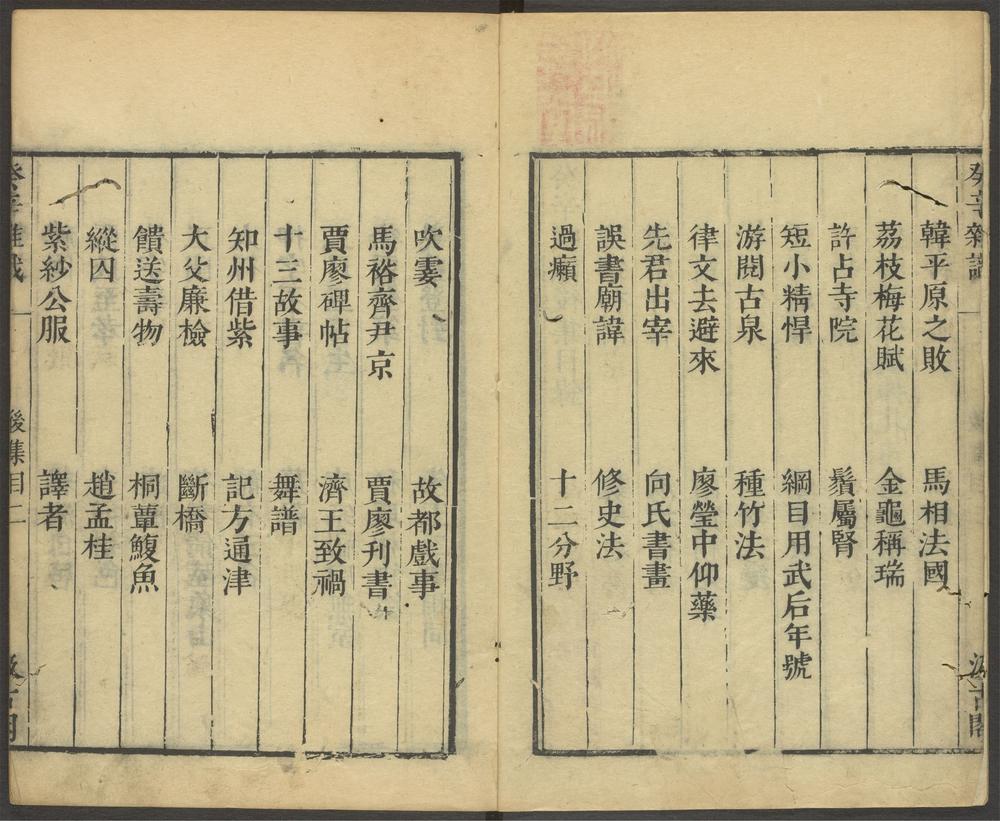 癸辛雜識
一
汲古閣
韓平原之敗　馬相法國
荔枝梅花賦　金龜稱瑞
許占寺院　鬚屬腎
短小精悍　綱目用武后年號
游閱古泉　種竹法
律文去避來　廖瑩中仰藥
先君出宰　向氏書畫
誤書廟諱　修史法
過癩　十二分野
吹霎　故都戲事
馬裕齋尹京　賈廖刊書
賈廖碑帖　濟王致禍
十三故事　舞譜
知州借紫　記方通津
大父廉儉　斷橋
饋送壽物　桐蕈鰒魚
縱囚　趙孟桂
紫紗公服　譯者
癸辛雜識　後集目二　汲古閣